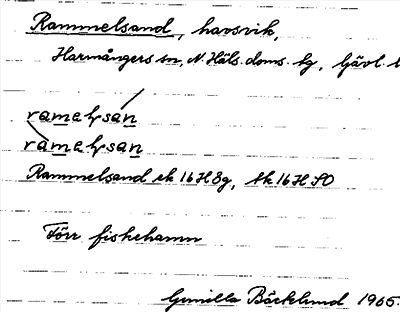 Rammelsand, havsvik,
Harmångers sn, N. Häls. doms. tg, Gävl. l
ramelsan
ramelsan
Rammelsand ek 16H8g, tk 16H SO
Förr fiskehamn
Gunilla Bäcklund 1965.